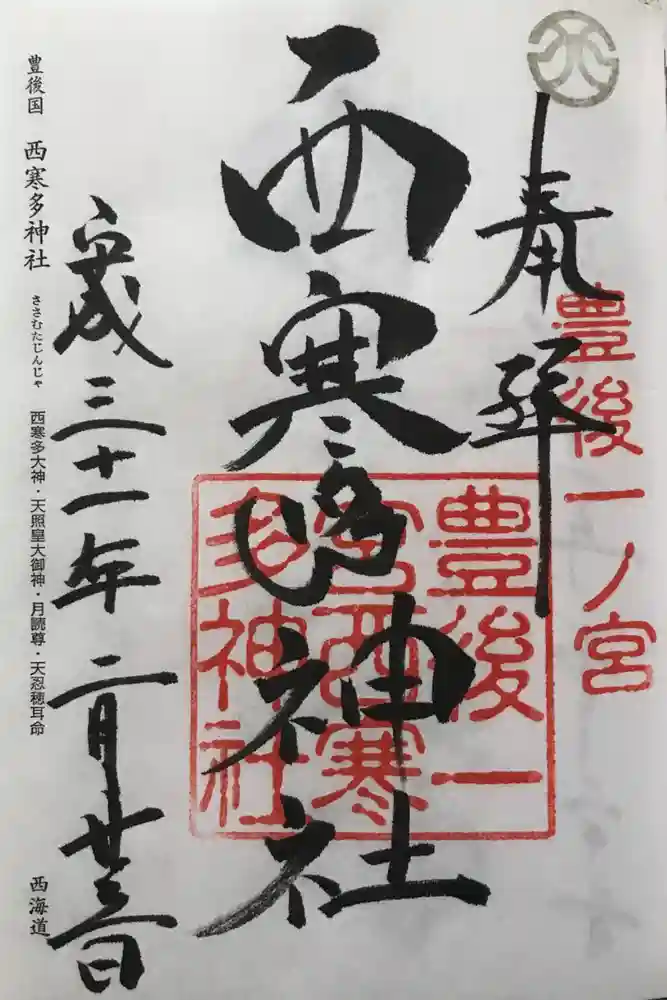 奉拝
豊後一ノ宮
西寒多神社
豊後一
宮西寒
多神社
平成三十一年二月廿三日
豊後国 西寒多神社 ささむたじんじゃ 西寒多大神・天照皇大御神・月読尊・天忍穂耳命 西海道